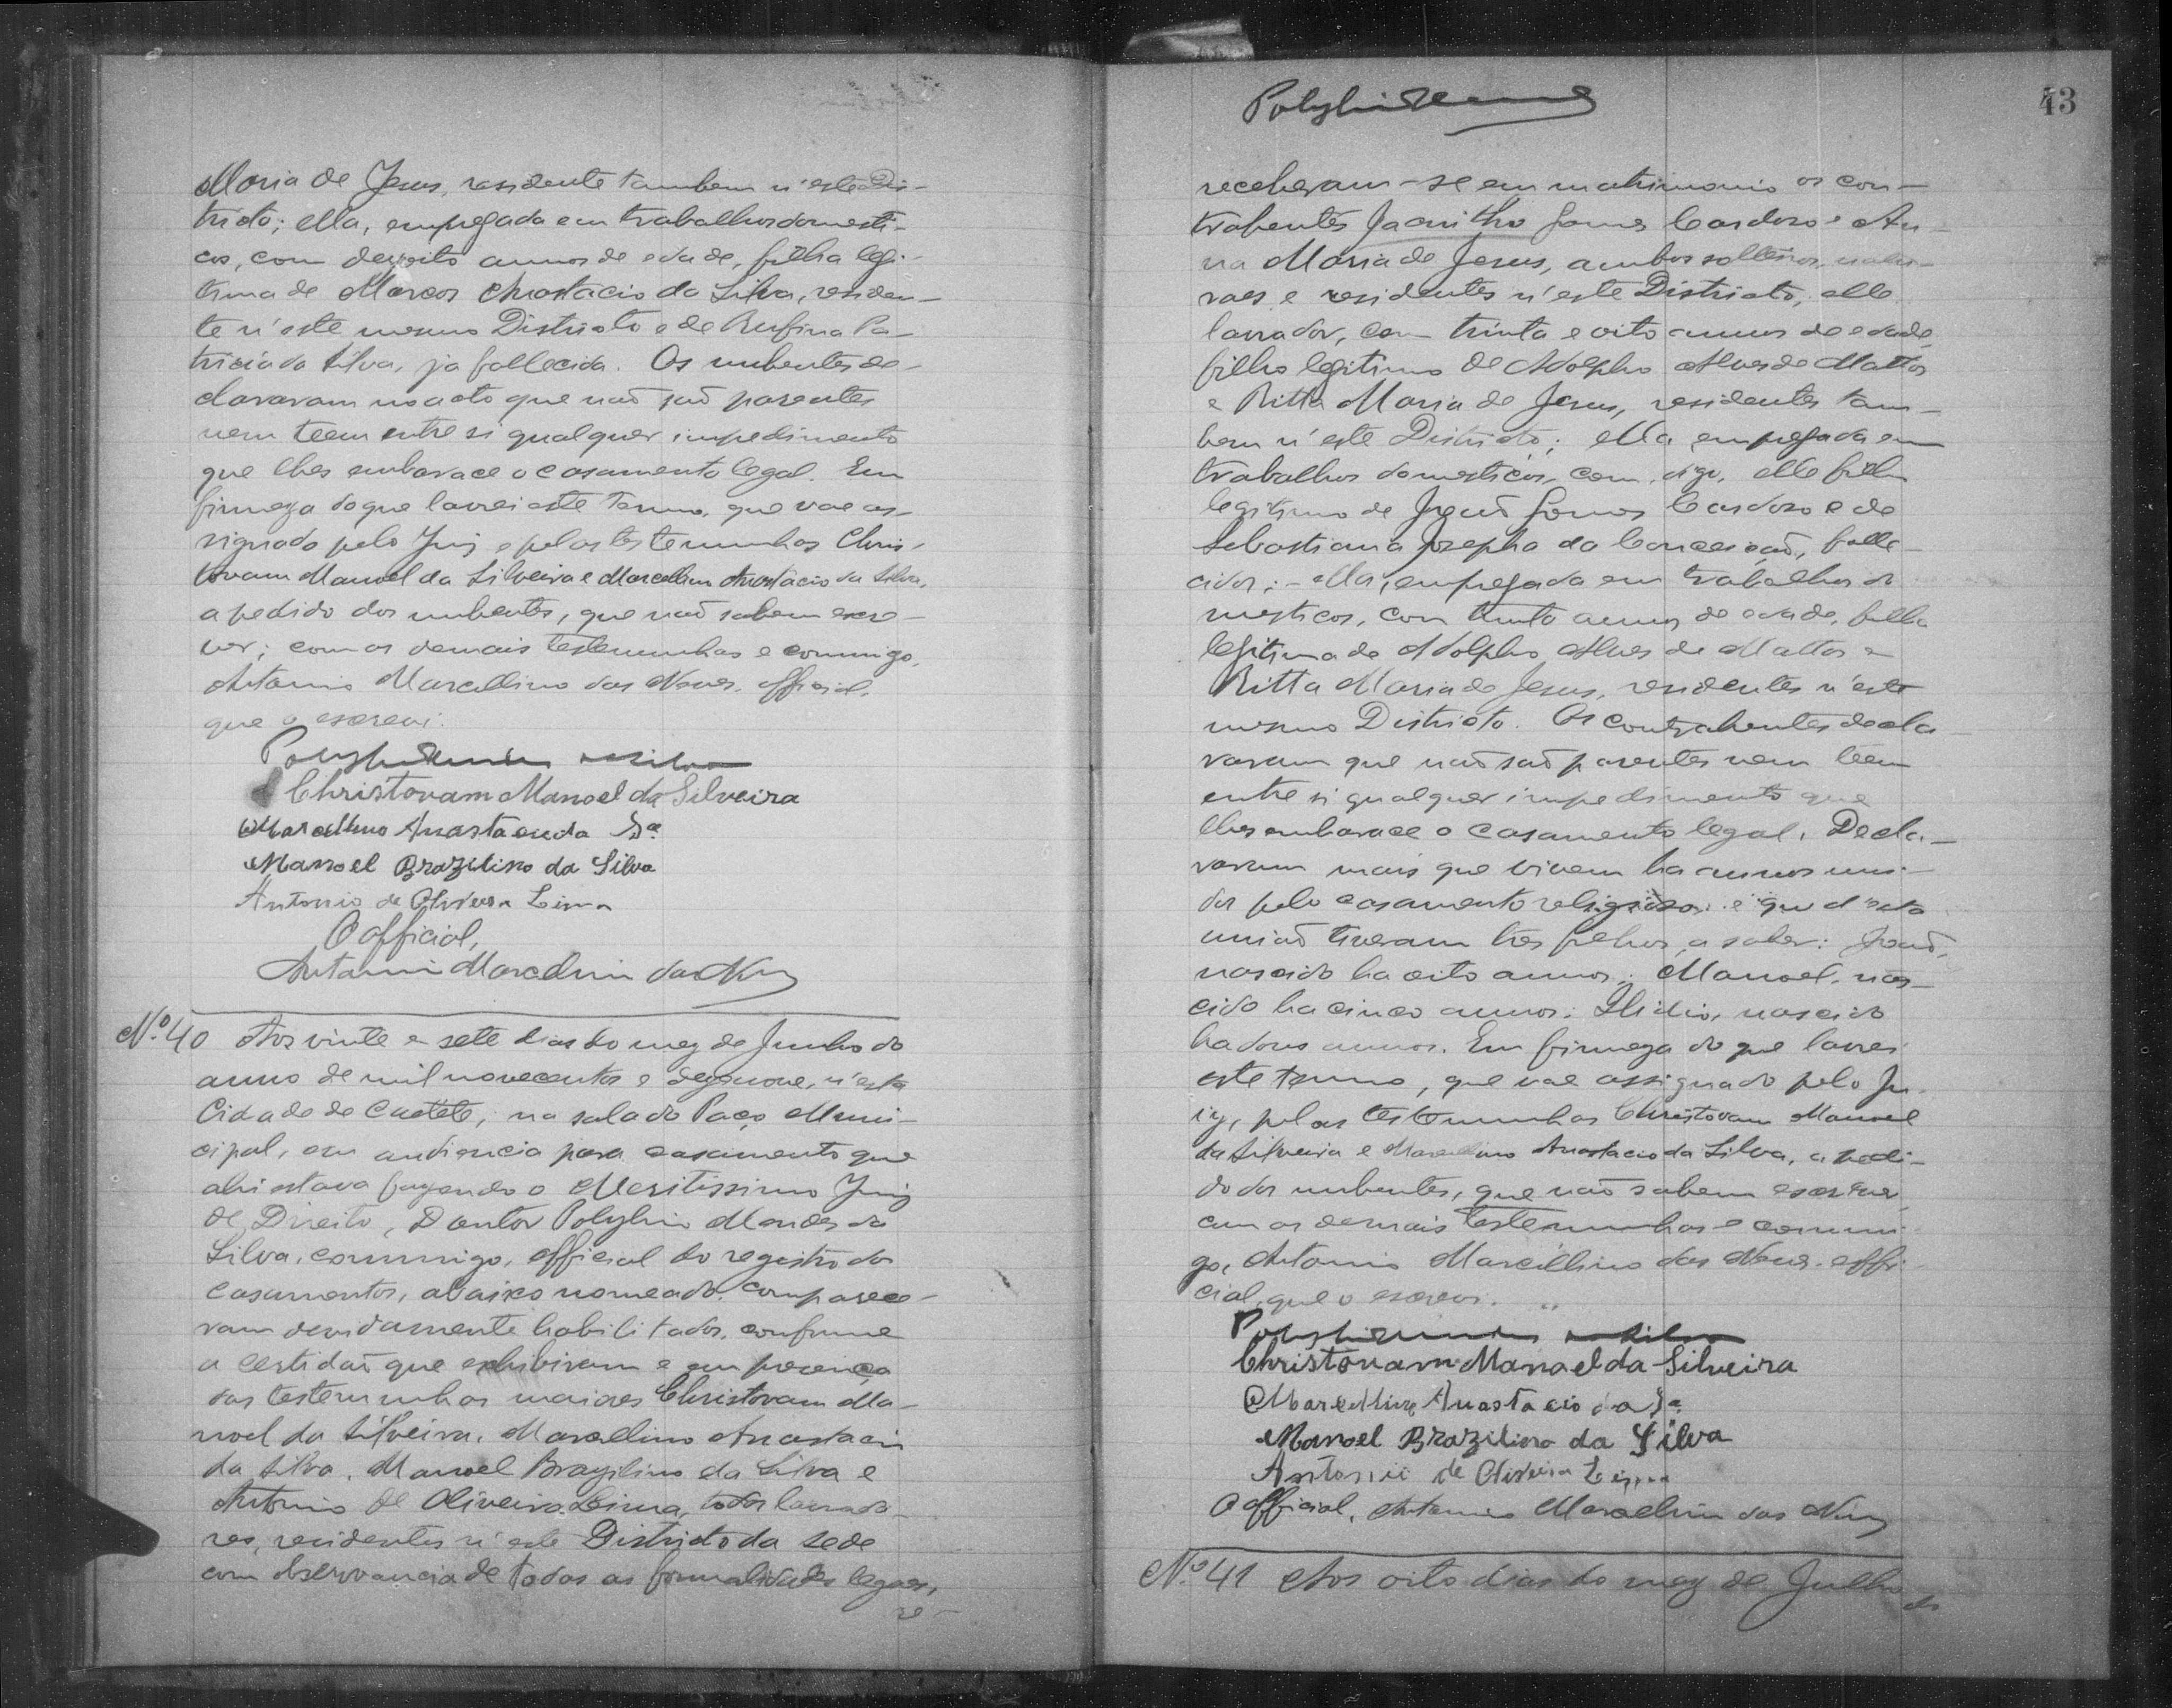 Maria de Jesus, residente tambem n'este Dis-
tricto; ella, empregada em trabalhos domesti-
cos, com dezoito annos de edade, filha legi-
tima de Marcos Anastacio da Silva, residen-
te n'este mesmo Districto e de Rufina Pa-
tricia da Silva, já fallecida. Os nubentes de-
clararam no acto que não são parentes
nem teem entre si qualquer impedimento
que lhes embarace o casamento legal. Em
firmeza do que lavrei este termo, que vae as-
signado pelo Juiz e pelas testemunhas Chris-
tovam Manoel da Silveira e Marcellino Anastacio da Silva,
a pedido dos nubentes, que não sabem escre-
ver; com as demais testemunhas e commigo,
Antonio Marcellino das Neves, official,
que o escrevi.
Polybio Mendes da Silva
Christovam Manoel da Silveira
Marcellino Anastacio da Sa
Manoel Brazilino da Silva
Antonio de Oliveira Lima
O official,
Antonio Marcellino das Neves
No. 40 Aos vinte e sete dias do mez de Junho do
anno de mil novecentos e dezenove, n'esta
Cidade de Caeteté, na sala do Paço Muni-
cipal, em audiencia para casamento que
ahi estava fazendo o Meritissimo Juiz
de Direito, Doutor Polybio Mendes da
Silva, commigo, official do registro dos
casamentos, abaixo nomeado, comparece-
ram devidamente habilitados, conforme
a certidão que exhibiram e em presença
das testemunhas maiores Christovam Ma-
noel da Silveira, Marcellino Anastacio
da Silva, Manoel Brazilino da Silva e
Antonio de Oliveira Lima, todos lavrado-
res, residentes n'este Districto da sede
com observancia de todas as formalidades legaes,
re-
43
receberam-se em matrimonio os con-
trahentes Jacintho Gomes Cardoso e An-
na Maria de Jesus, ambos solteiros, natu-
raes e residentes n'este Districto, elle
lavrador, com trinta e oito annos de edade,
filho legitimo de Adolpho Alves de Mattos
e Ritta Maria de Jesus, residentes tam-
bem n'este Districto; ella empregada em
trabalhos domesticos, com, digo, elle filho
legitimo de João Gomes Cardoso e de
Sebastiana Josepha da Conceição, falle-
cidos; - ella, empregada em trabalhos do
mesticos, com trinta annos de edade, filha
legitima de Adolpho Alves de Mattos e
Ritta Maria de Jesus, residentes n'este
mesmo Districto. Os contrahentes decla-
raram que não são parentes nem teem
entre si qualquer impedimento que
lhes embarace o casamento legal. Decla-
raram mais que vivem ha annos uni-
dos pelo casamento religioso e que d'esta
união tiveram tres filhos, a saber: João,
nascido ha oito annos; Manoel, nas-
cido ha cinco annos; Ilidio, nascido
ha dous annos. Em firmeza do que lavrei
este termo, que vae assignado pelo Ju-
iz, pelas testemunhas Christovam Manoel
da Silveira e Marcellino Anastacio da Silva, a pedi-
do dos nubentes, que não sabem escrever,
com as demais testemunhas e commi-
go, Antonio Marcellino das Neves, offi-
cial, que o escrevi.
Polybio Mendes da Silva
Christovam Manoel da Silveira
Marcellino Anastacio da Sa
Manoel Brazilino da Silva
Antonio de Oliveira Lima
O official, Antonio Marcellino das Neves
No. 41 Aos oito dias do mez de Julho
do